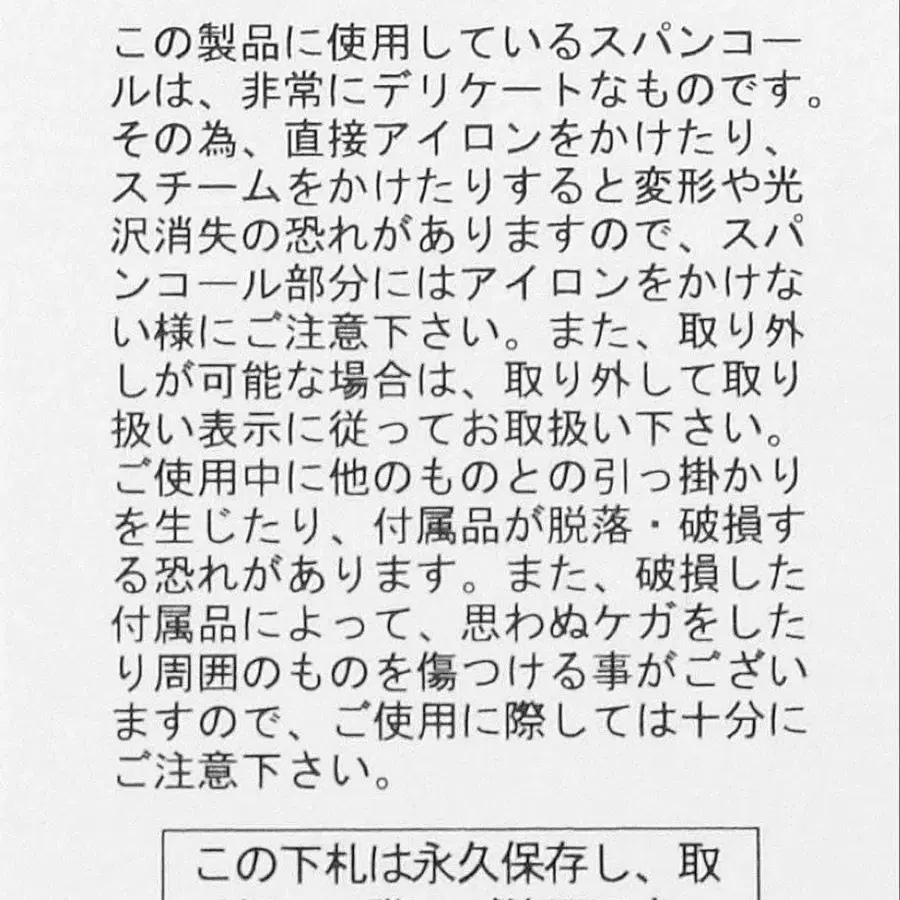 この製品に使用しているスパンコー
ルは、非常にデリケートなものです。
その為、直接アイロンをかけたり、
スチームをかけたりすると変形や光
沢消失の恐れがありますので、スパ
ンコール部分にはアイロンをかけな
い様にご注意下さい。また、取り外
しが可能な場合は、取り外して取り
扱い表示に従ってお取扱い下さい。
ご使用中に他のものとの引っ掛かり
を生じたり、付属品が脱落・破損す
る恐れがあります。また、破損した
付属品によって、思わぬケガをした
り周囲のものを傷つける事がござい
ますので、ご使用に際しては十分に
ご注意下さい。
この下札は永久保存し、取